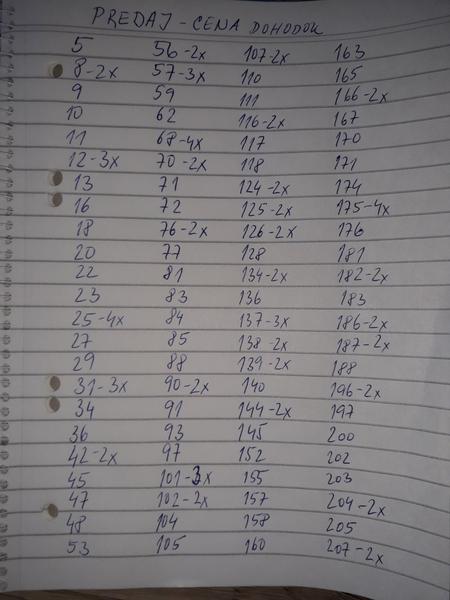 PREDAJ - CENA DOHODOU
5 56-2x 107-2x 163
8-2x 57-3x 110 165
9 59 111 166-2x
10 62 116-2x 167
11 68-4x 117 170
12-3x 70-2x 118 171
13 71 124-2x 174
16 72 125-2x 175-4x
18 76-2x 126-2x 176
20 77 128 181
22 81 134-2x 182-2x
23 83 136 183
25-4x 84 137-3x 186-2x
27 85 138-2x 187-2x
29 88 139-2x 188
31-3x 90-2x 140 196-2x
34 91 144-2x 197
36 93 145 200
42-2x 97 152 202
45 101-3x 155 203
47 102-2x 157 204-2x
48 104 158 205
53 105 160 207-2x